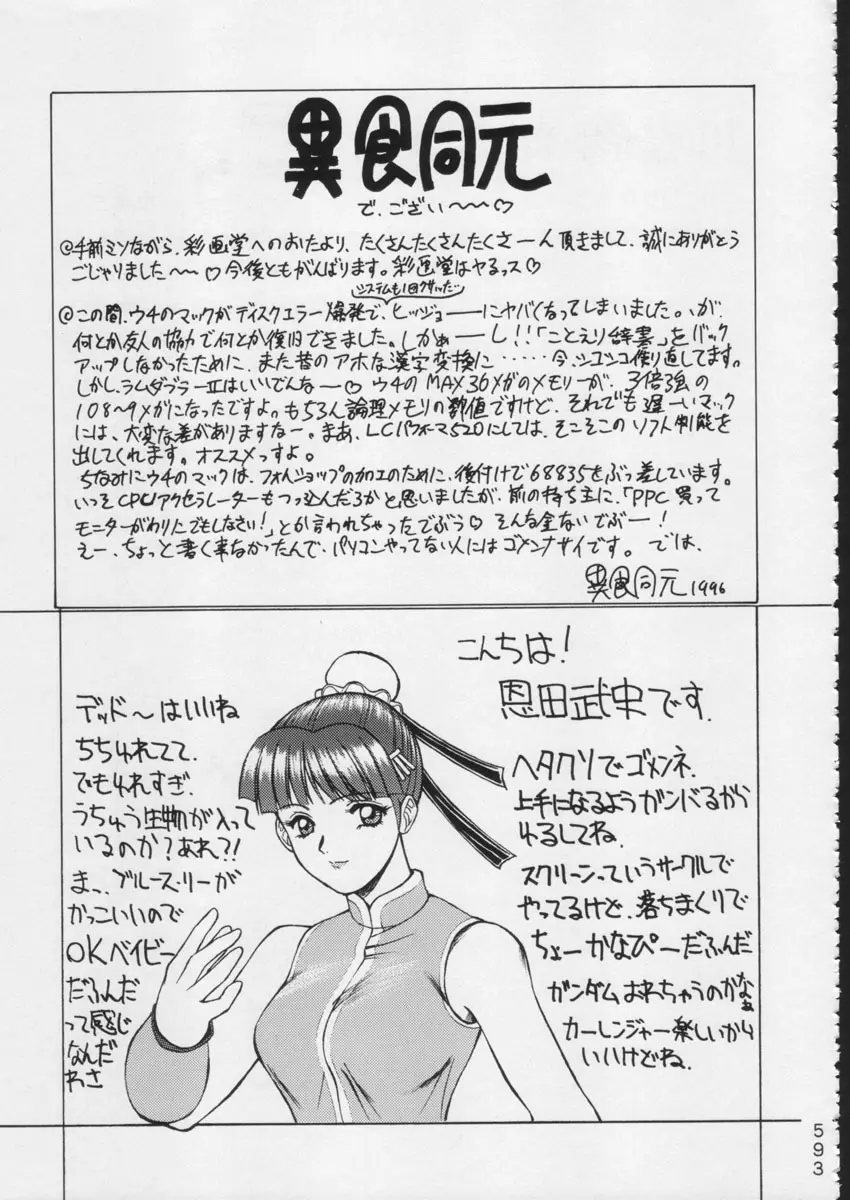 異食同元
で、ございー〜〜♡
◎手前ミソながら、彩画堂へのおたより、たくさんたくさんたくさーん頂きまして、誠にありがとう
ごじゃりました〜〜♡今後ともがんばります。彩画堂はヤるっス♡
システムも1回クサッた…
◎この間、ウチのマックがディスクエラー爆発で、ヒッジョーーにヤバくなってしまいました。が、
何とか友人の協力で何とか復旧できました。しかぁーーし!!「ことえり辞書」をバック
アップしなかったために、また昔のアホな漢字変換に……今、シコシコ作り直してます。
しかし、ラムダブラーⅡはいいでんなー♡ ウチのMAX36メガのメモリーが、3倍強の
108〜9メガになったですよ。もちろん論理メモリの数値ですけど、それでも遅ーいマック
には、大変な差がありますなー。まあ、LCパフォーマ520にしては、そこそこのソフト性能を
出してくれます。オススメっすよ。
ちなみにウチのマックは、フォトショップの加工のために、後付けで68835をぶっ差しています。
いっそCPUアクセラレーターもつっ込んだろかと思いましたが、前の持ち主に、「PPC買って
モニターがわりにでもしなさい!」とか言われちゃったでぶう♡ そんな金ないでぶー!
えー、ちょっと書く事なかったんで、パソコンやってない人にはゴメンナサイです。では、
異食同元1996
こんちは!
恩田武史です.
ヘタクソでゴメンネ.
上手になるようガンバるから
ゆるしてね.
スクリーンっていうサークルで
やってるけど、落ちまくりで
ちょーかなぴーだふんだ
ガンダムおわっちゃうのかなぁ
カーレンジャー楽しいから
いいけどね.
デッド〜はいいね
ちちゆれてて.
でもゆれすぎ.
うちゅう生物が入って
いるのか?あれ?!
ま、ブルース・リーが
かっこいいので
OKベイビー
だふんだ
って感じ
なんだ
わさ
593